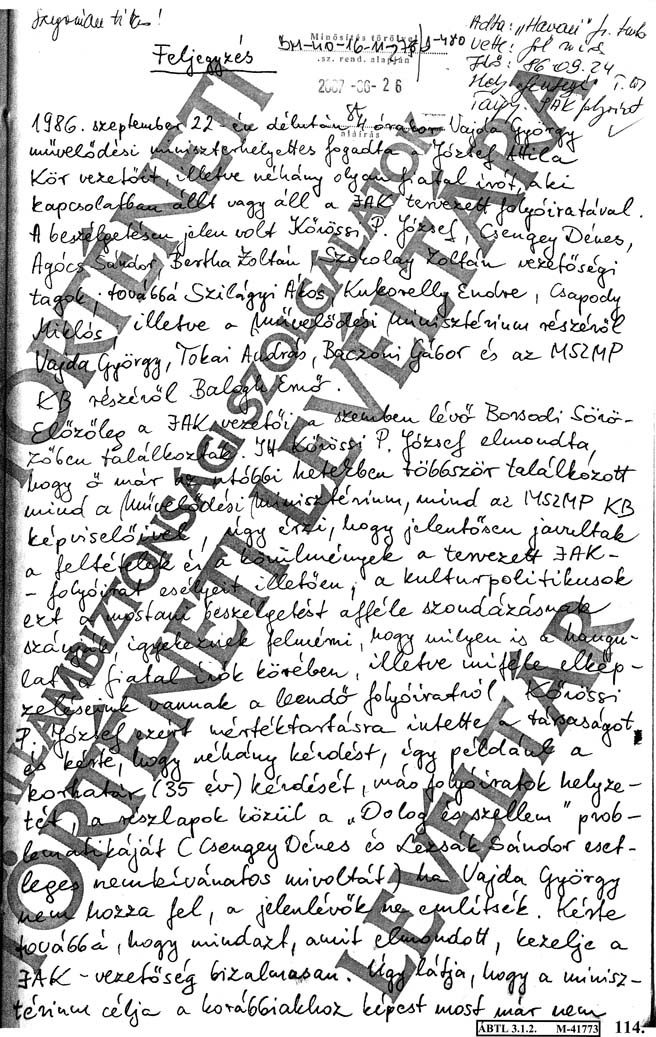 Szigorúan titkos!
Feljegyzés
Minősítés törölve
BM-110-16-11-
.sz. rend. alapján
2007 -06- 26
aláírás
Adta: "Havasi" fn. tmb
Vette:
Idő: 86.09.24
Hely: "
Tárgy: JAK folyóirat
1986. szeptember 22-én délután 4 órakor Vajda György
művelődési miniszterhelyettes fogadta a József Attila
Kör vezetőit, illetve néhány olyan fiatal írót, aki
kapcsolatban állt vagy áll a JAK tervezett folyóiratával.
A beszélgetésen jelen volt Kőrössi P. József, Csengey Dénes,
Agócs Sándor, Bertha Zoltán, Szokolay Zoltán vezetőségi
tagok, továbbá Szilágyi Ákos, Kukorelly Endre, Csapody
Miklós, illetve a Művelődési Minisztérium részéről
Vajda György, Tokai András, Baczoni Gábor és az MSZMP
KB részéről Balogh Ernő.
Előzőleg a JAK vezetői a szemben lévő Borsodi Sörö-
zőben találkoztak. Itt Kőrössi P. József elmondta,
hogy ő már az utóbbi hetekben többször találkozott
mind a Művelődési Minisztérium, mind az MSZMP KB
képviselőivel, úgy érzi, hogy jelentősen javultak
a feltételek és a körülmények a tervezett JAK-
-folyóirat esélyeit illetően, a kulturpolitikusok
ezt a mostani beszélgetést afféle szondázásnak
szánják, igyekeznek felmérni, hogy milyen is a hangu-
lat a fiatal írók körében, illetve miféle elkép-
zeléseink vannak a leendő folyóiratról. Kőrössi
P. József ezért mértéktartásra intette a társaságot,
és kérte, hogy néhány kérdést, így például a
korhatár (35 év) kérdését, más folyóiratok helyze-
tét, a részlapok közül a „Dolog és szellem" prob-
lematikáját (Csengey Dénes és Lezsák Sándor eset-
leges nemkívánatos mivoltát) ha Vajda György
nem hozza fel, a jelenlévők ne említsék. Kérte
továbbá, hogy mindazt, amit elmondott, kezelje a
JAK-vezetőség bizalmasan. Úgy látja, hogy a minisz-
térium célja a korábbiakhoz képest most már nem
ÁBTL 3.1.2. M-41773 114.
TÖRTÉNETI
ÁLLAMBIZTONSÁGI SZOLGÁLATOK
TÖRTÉNETI LEVÉLTÁRA
LEVÉLTÁR